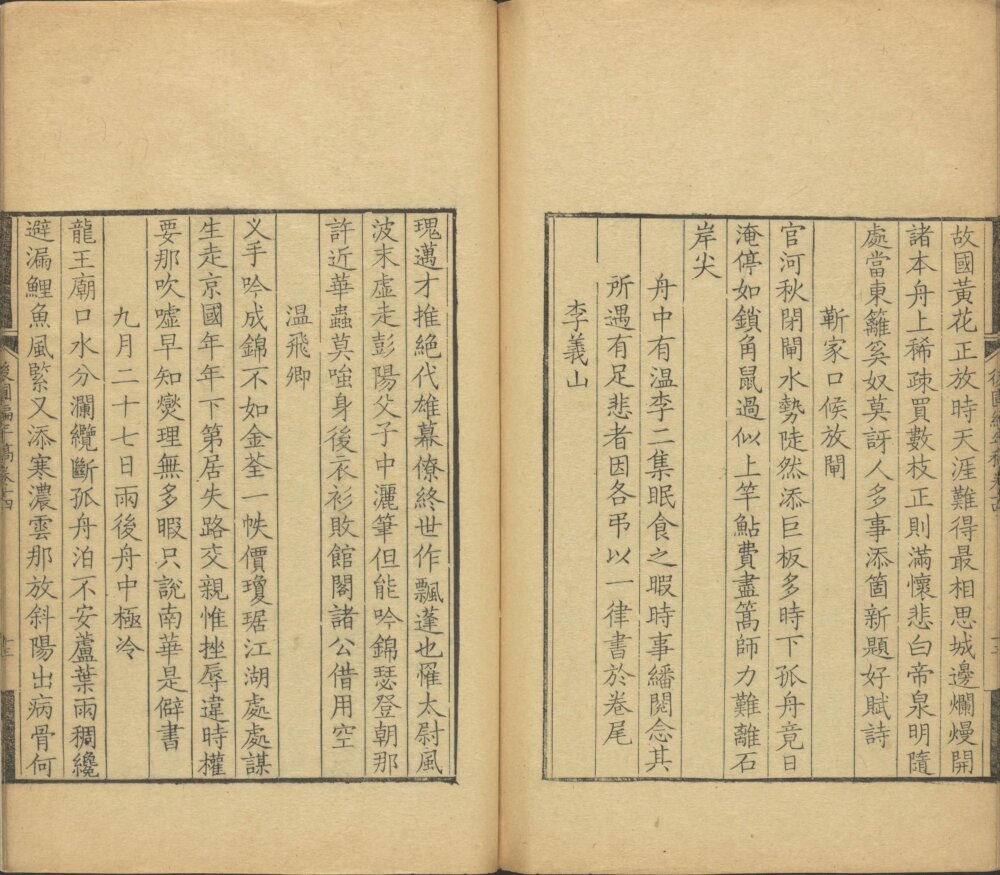 故國黃花正放時天涯難得最相思城邊爛熳開
諸本舟上稀疎買數枝正則滿懷悲白帝泉明隨
處當東籬奚奴莫訝人多事添箇新題好賦詩
靳家口候放閘
官河秋閉閘水勢陡然添巨板多時下孤舟竟日
淹停如鎖角鼠過似上竿鮎費盡篙師力難離石
岸尖
舟中有溫李二集眠食之暇時事繙閱念其
所遇有足悲者因各弔以一律書於卷尾
李義山
瑰邁才推絕代雄幕僚終世作飄蓬也罹太尉風
波末虛走彭陽父子中灑筆但能吟錦瑟登朝那
許近華蟲莫嗤身後衣衫敗館閣諸公借用空
溫飛卿
义手吟成錦不如金荃一帙價瓊琚江湖處處謀
生走京國年年下第居失路交親惟挫辱違時權
要那吹噓早知爕理無多暇只說南華是僻書
九月二十七日雨後舟中極冷
龍王廟口水分瀾纜斷孤舟泊不安蘆葉雨稠纔
避漏鯉魚風緊又添寒濃雲那放斜陽出病骨何